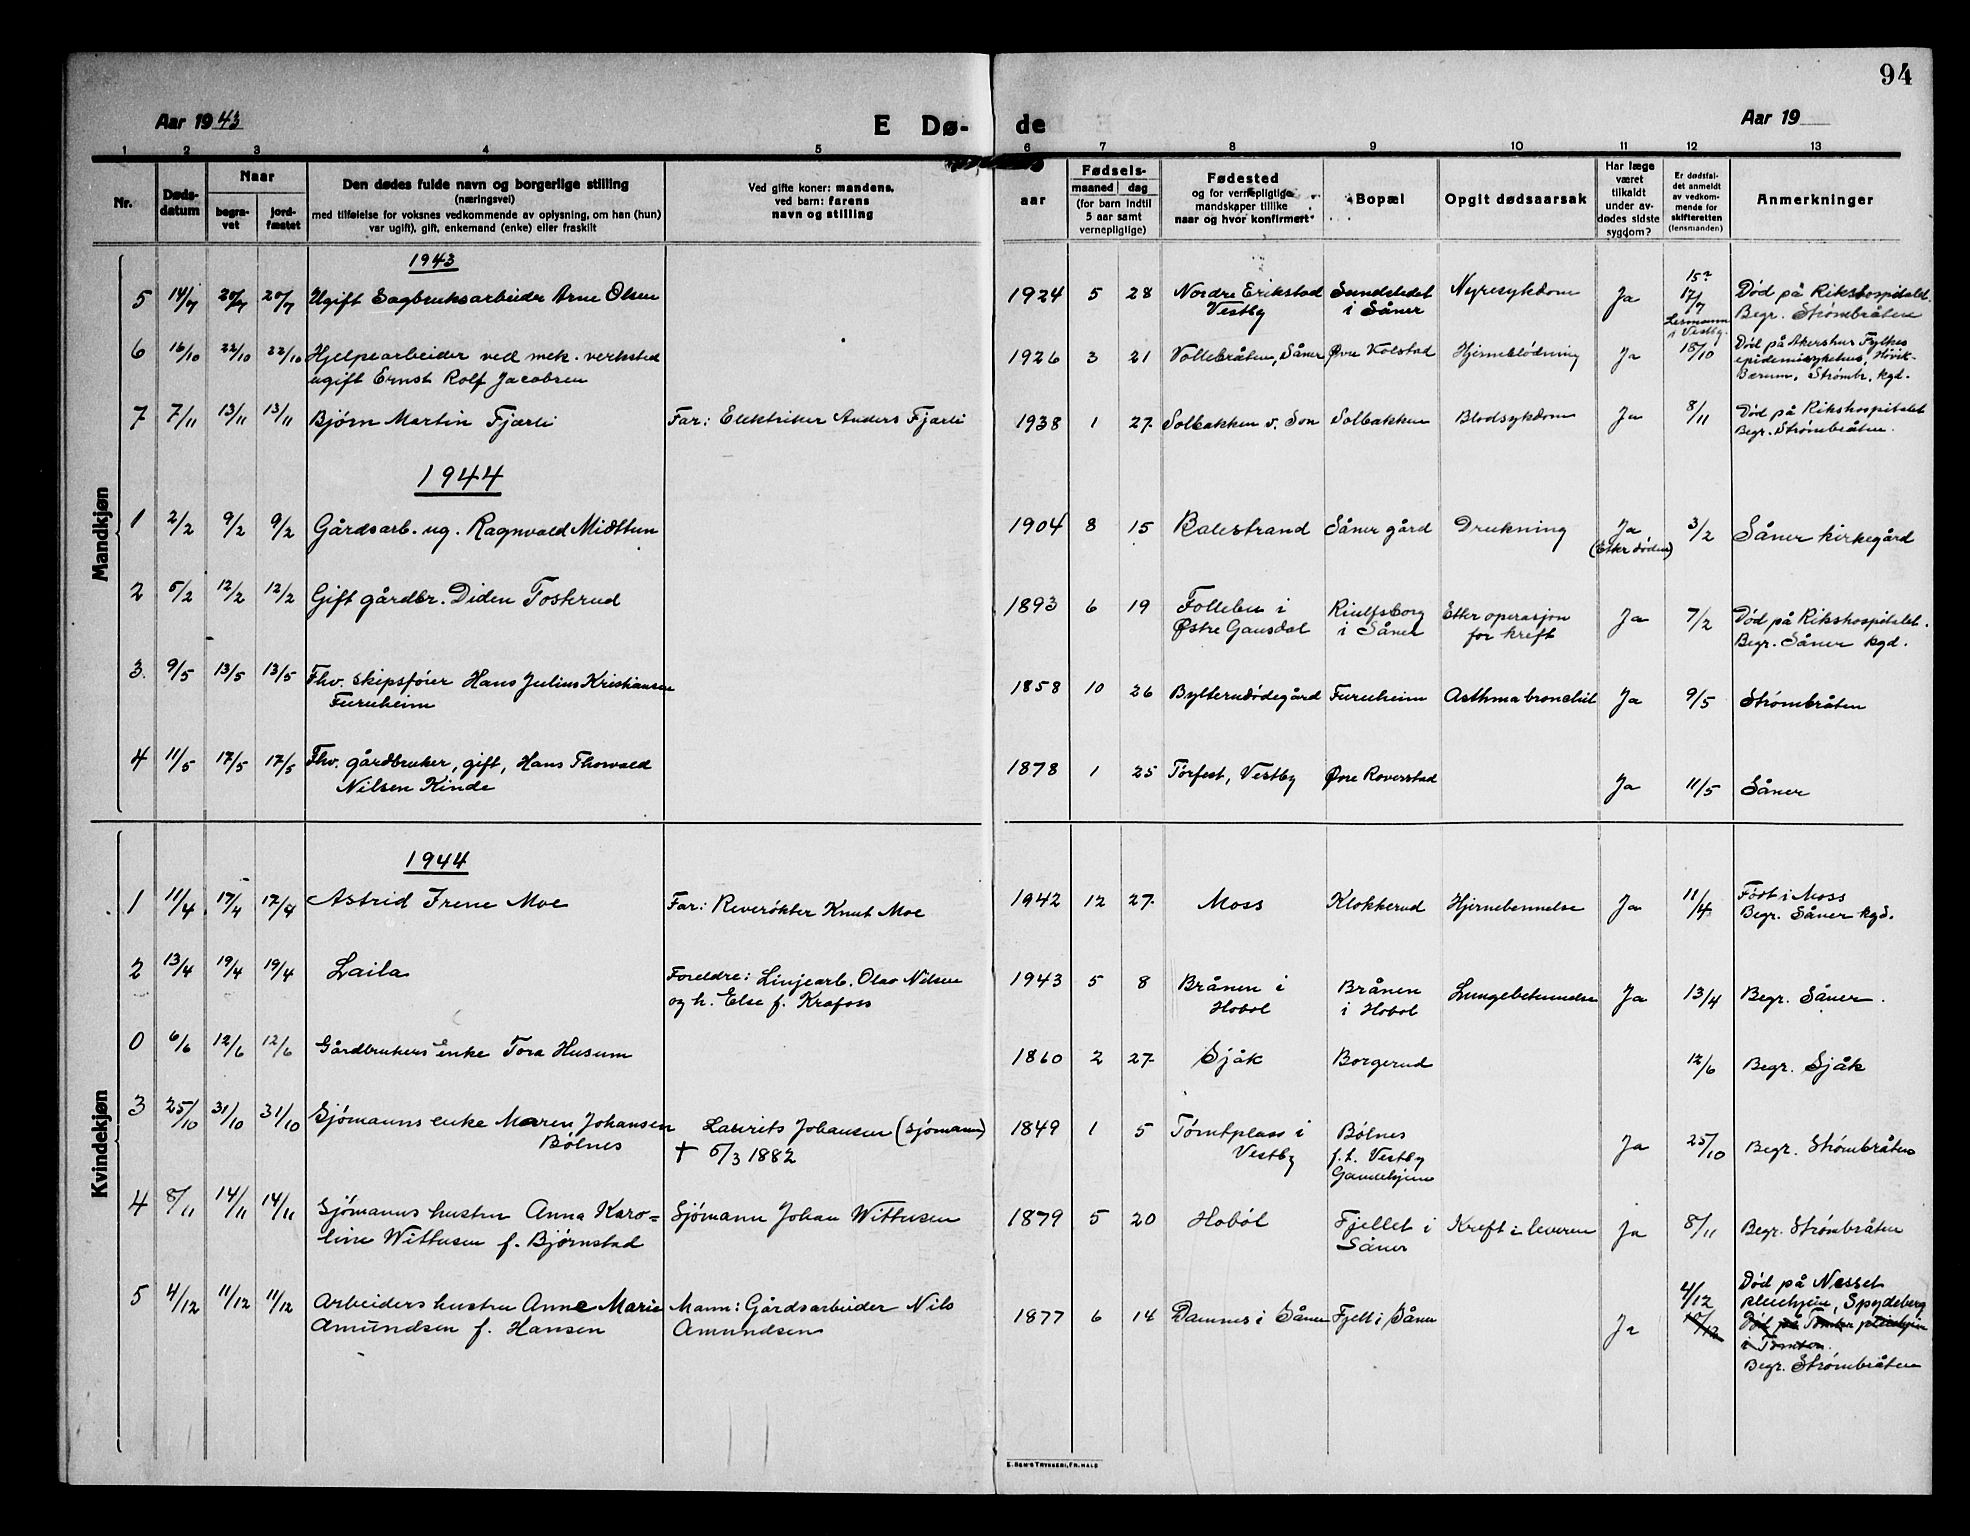 94
Aar 1943
E Dø- de
Aar 19
1 2 3 4 5 6 7 8 9 10 11 12 13
Nr.
Døds-
datum
Naar
begra-
vet
jord-
fæstet
Den dødes fulde navn og borgerlige stilling
(næringsvei)
med tilføielse for voksnes vedkommende av oplysning, om han (hun)
var ugift), gift, enkemand (enke) eller fraskilt
Ved gifte koner: mandens,
ved barn: farens
navn og stilling
aar
Fødsels-
maaned dag
(for barn indtil
5 aar samt
vernepligtige)
Fødested
og for vernepligtige
mandskaper tillike
naar og hvor konfirmert
Bopæl
Opgit dødsaarsak
Har læge
været
tilkaldt
under av-
dødes sidste
sygdom?
Er dødsfal-
det anmeldt
av vedkom-
mende for
skifteretten
(lensmanden)
Anmerkninger
Mandkjøn
1943
5 14/7 20/7 20/7 Ugift Sagbruksarbeider Arne Olsen 1924 5 28 Nordre Erikstad Sundstedet Nyresykdom Ja 17/7 Død på Rikshospitalet.
Vestby i Såner Lensmann i Vestby. Begr. Strømbråten
6 16/10 22/10 22/10 Hjelpearbeider ved mek. verksted 1926 3 21 Vollebråten, Såner Øvre Kolstad Hjerneblødning Ja 18/10 Død på Akershus Fylkes
ugift Ernst Rolf Jacobsen epidemisykehus, Høvik-
Bærum, Strømbr. kgd.
7 7/11 13/11 13/11 Bjørn Martin Fjærli Far: Elektriker Anders Fjærli 1938 1 27 Solbakken v. Son Solbakken Blodsykdom Ja 8/11 Død på Rikshospitalet
Begr. Strømbråten.
1944
1 2/2 9/2 9/2 Gårdsarb. ug. Ragnvald Midttun 1904 8 15 Balestrand Såner gård Drukning Ja 3/2 Såner kirkegård
(Etter døden)
2 5/2 12/2 12/2 Gift gårdbr. Diden Tosterud 1893 6 19 Follebu i Riulfsborg Etter operasjon Ja 7/2 Død på Rikshospitalet.
Østre Gausdal i Såner for kreft Begr. Såner kgd.
3. 9/5 13/5 13/5 Fhv. skipsfører Hans Julius Kristiansen 1858 10 26 Bylterudødegård Furuheim Asthma bronchit Ja 9/5 Strømbråten
Furuheim
4 11/5 17/5 17/5 Fhv. gårdbruker, gift, Hans Thorvald 1878 1 25 Torfest, Vestby Øvre Roverstad Ja 11/5 Såner
Nilsen Kinde
Kvindekjøn
1944
1 11/4 17/4 17/4 Astrid Irene Moe Far: Reverøkter Knut Moe 1942 12 27 Moss Klokkerud Hjernebennelse Ja 11/4 Født i Moss
Begr. Såner kgd.
2 13/4 19/4 19/4 Laila Foreldre: Linjearb. Olav Nilsen 1943 5 8 Brånen i Brånen Lungebetennelse Ja 13/4 Begr. Såner.
og h. Else f. Krafoss Hobøl i Hobøl
0 6/6 12/6 12/6 Gårdbrukers enke Tora Husum 1860 2 27 Sjåk Borgerud 12/6 Begr. Sjåk
3 25/10 31/10 31/10 Sjømanns enke Maren Johansen Laurits Johansen (sjømann) 1849 1 5 Tømtplass i Bølnes Ja 25/10 Begr. Strømbråten
Bølnes † 5/3 1882 Vestby f.t. Vestby
Gamlehjem
4 8/11 14/11 14/11 Sjømanns hustru Anna Karo= Sjømann Johan Wittusen 1879 5 20 Hobøl Fjellet i Kreft i leveren Ja 8/11 Begr. Strømbråten
line Wittusen f. Bjørnstad Såner
5 4/12 11/12 11/12 Arbeiders hustru Anne Marie Mann: Gårdsarbeider Nils 1877 6 14 Damnes i Såner Fjell i Såner Ja 4/12 Død på Nesset
Amundsen f. Hansen Amundsen pleiehjem, Spydeberg
Død på Tomter pleiehjem
i Tomter.
Begr. Strømbråten
E. SEM'S TRYKKERI, FR.HALD